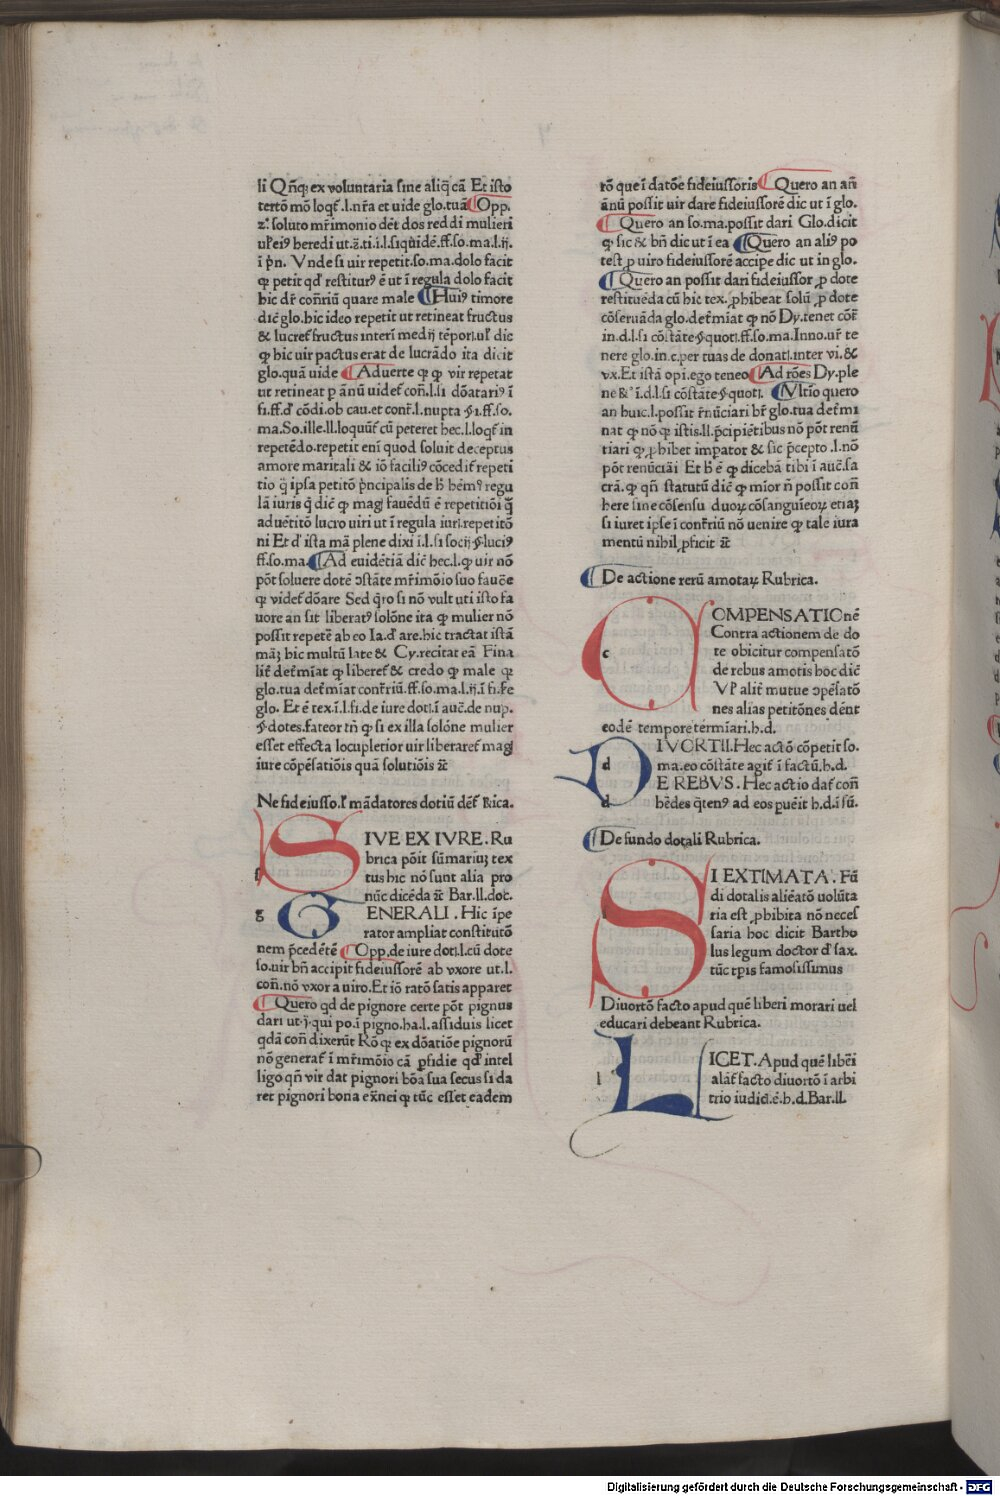 li Qn̄qꝫ ex voluntaria sine aliq̄ cā Et isto
tertō mō loqt̄.l.nr̄a et uide glo.tuā Opp.
z. soluto mr̄imonio det dos reddi mulieri
ul' eiꝰ heredi ut.z.ti.i.l.siquidē.ff.so.ma.l.ij.
ī pn̄. Vnde si uir repetit.so.ma.dolo facit
qꝫ petit qd' restiturꝰ ē ut ī regula dolo facit
hic dr̄ con̄riū quare male Huiꝰ timore
dic̄ glo.hic ideo repetit ut retineat fructus
& lucret̄ fructus interī medij tēpori.ul' dic
qꝫ hic uir pactus erat de lucrādo ita dicit
glo.quā uide Aduerte qꝫ qꝫ vir repetat
ut retineat p ānū uidet̄ con̄.l.si dōatariꝰ ī
fi.ff.d' cōdi.ob cau.et contr̄.l.nupta §i.ff.so.
ma.So.ille.ll.loquūt̄ cū peteret hec.l.loqt̄ in
repetēdo.repetit enī quod soluit deceptus
amore maritali & iō faciliꝰ cōcedit̄ repeti
tio q̄ ipsa petitō p̄ncipalis de h' bēmꝰ regu
lā iuris q̄ dic̄ qꝫ magꝭ fauēdū ē repetitiōi q̄ꝫ
aduētitō lucro uiri ut ī regula iuri.repetitō
ni Et d' ista mā plene dixi ī.l.si socij §luciꝰ
ff.so.ma. Ad euidētiā dic̄ hec.l.qꝫ uir nō
pōt soluere dotē ↄstāte mr̄imōio suo fauēe
qꝫ videt̄ dōare Sed q̄ro si nō vult uti isto fa
uore an sit liberatꝰ solōne ita qꝫ mulier nō
possit repetē ab eo Ia.d' are.hic tractat istā
māꝫ hic multū late & Cy.recitat eā Fina
lit̄ det̄mīat qꝫ liberet̄ & credo qꝫ male qꝫ
glo.tua det̄mīat contr̄iū.ff.so.ma.l.ij.ī fi.ī e
glo. Et ē tex.ī.l.fi.de iure doti.ī auc̄.de nup.
§dotes.fateor tn̄ qꝫ si ex illa solōne mulier
esset effecta locupletior uir liberaret̄ magꝭ
iure cōpēsatiōis quā solutiōis &c̄
Ne fideiusso.l' mādatores dotiū dēt̄ Rica.
SIVE EX IVRE. Ru
brica pōit sūmariuꝫ tex
tus hic nō sunt alia pro
nūc dicēda &c̄ Bar.ll.doc.
GENERALI. Hic īpe
rator ampliat constitutō
nem p̄cedētē Opp.de iure doti.l.cū dote
so.uir bn̄ accipit fideiussorē ab vxore ut.l.
con̄.nō vxor a uiro.Et iō ratō satis apparet
Quero qd de pignore certe pōt pignus
dari ut.j.qui po.ī pigno.ha.l.assiduis licet
qdā con̄ dixerūt Rō qꝫ ex dōatiōe pignorū
nō generat̄ ī mr̄imōio cā ꝑfidie qd' intel
ligo qn̄ vir dat pignori bōa sua secus si da
ret pignori bona ex̄nei qꝫ tūc esset eadem
rō que ī datōe fideiussōris Quero an an̄
ānū possit uir dare fideiussorē dic ut ī glo.
Quero an so.ma.possit dari Glo.dicit
qꝫ sic & bn̄ dic ut ī ea Quero an aliꝰ po
test p uiro fideiussorē accipe dic ut in glo.
Quero an possit dari fideiussor p dote
restituēda cū hic tex.phibeat solū p dote
cōseruāda glo.det̄mīat qꝫ nō Dy.tenet cōt̄
in.d.l.si cōstāte §quoti.ff.so.ma.Inno.ur̄ te
nere glo.in.c.per tuas de donati.inter vi.&
vx.Et istā opi.ego teneo Ad rōes Dy.ple
ne &ꝰ ī.d.l.si cōstāte §quoti. Vltīo quero
an huic.l.possit r̄nūciari br̄ glo.tua det̄mi
nat qꝫ nō qꝫ istis.ll.p̄cipiētibus nō pōt renū
tiari qꝫ phibet impator & sic p̄cepto.l.nō
pōt renūciāi Et h' ē qꝫ dicebā tibi ī auc̄.sa
crā.qꝫ qn̄ statutū dic̄ qꝫ mior n̄ possit con̄
here sine cōsensu duoꝝ cōsanguīeoꝝ etiaꝫ
si iuret ipse ī contr̄iū nō uenire qꝫ tale iura
mentū nihil pficit &c̄
De actione rerū amotaꝝ Rubrica.
c
COMPENSATIOnē
Contra actionem de do
te obicitur compensatō
de rebus amotis hoc dic̄
Vl' alit̄ mutue ↄpēsatō
nes alias petitōnes dēnt
eodē tempore termīari.h.d.
d
DIVORTII.Hec actō cōpetit so.
ma.eo cōstāte agit̄ ī factū.h.d.
d
DE REBVS. Hec actio dat̄ con̄
hēdes q̄tenꝰ ad eos puēit h.d.ī sū.
De fundo dotali Rubrica.
SI EXTIMATA. Fū
di dotalis aliēatō uolūta
ria est phibita nō neces
saria hoc dicit Bartho
lus legum doctor d' sax.
tūc tꝑis famosissimus
Diuortō facto apud quē liberi morari uel
educari debeant Rubrica.
l
LICET. Apud quē libēi
alāt̄ facto diuortō ī arbi
trio iudicꝭ.ē.h.d.Bar.ll.
Digitalisierung gefördert durch die Deutsche Forschungsgemeinschaft - DFG